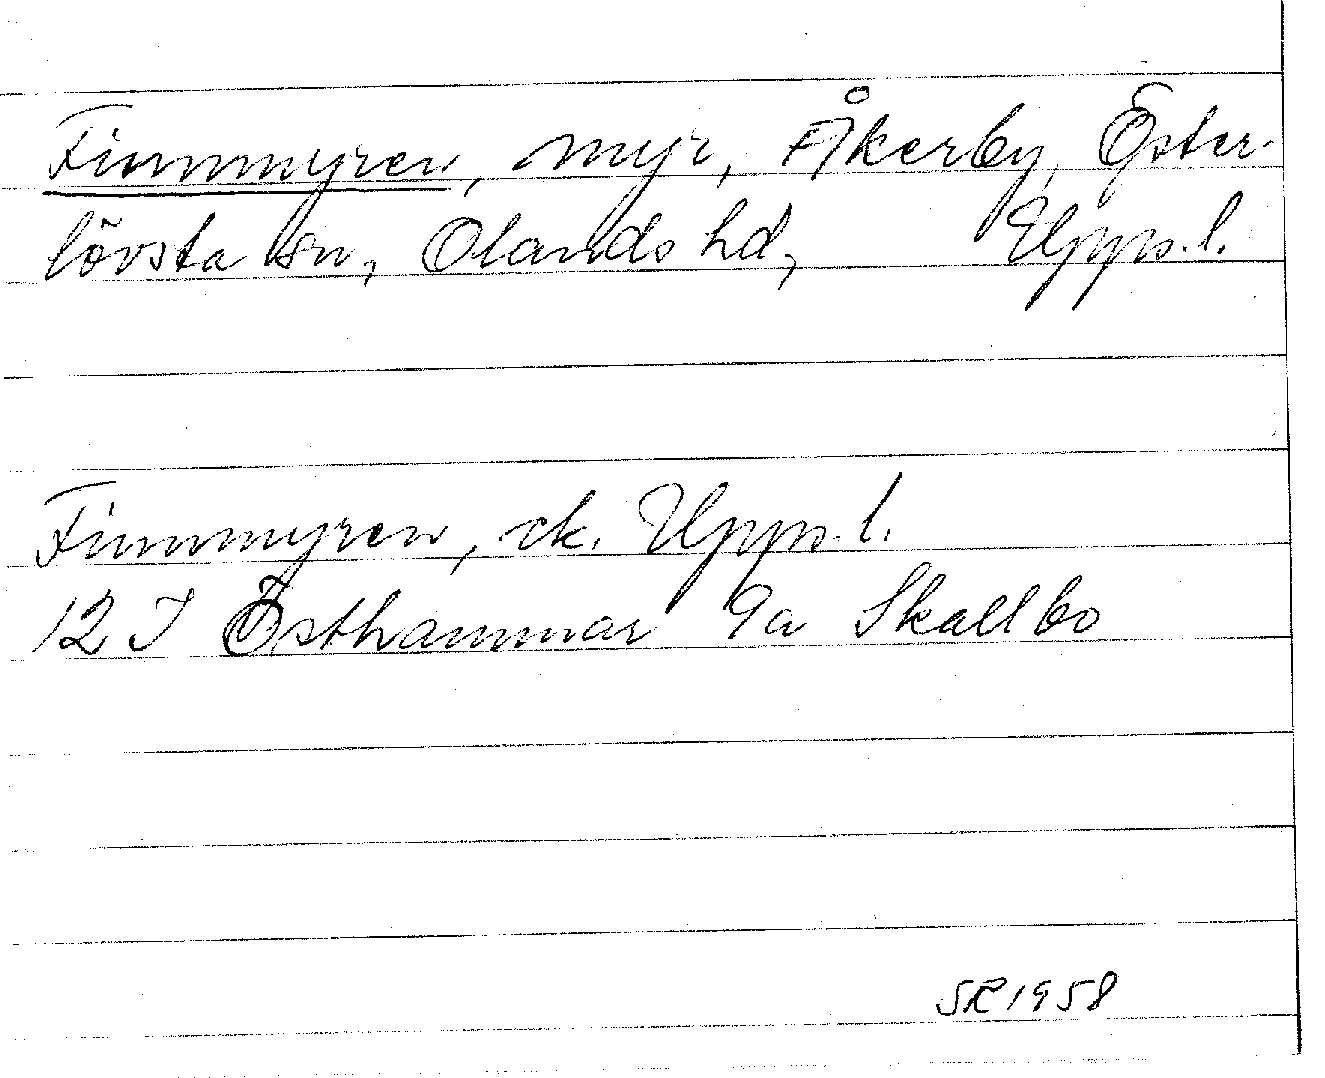 Finnmyren, myr, Åkerby, Öster-
lövsta sn, Olands hd, Uppl.
Finnmyren, ek. Uppl.
12 I Östhammar 9a Skallbo
SR 1958